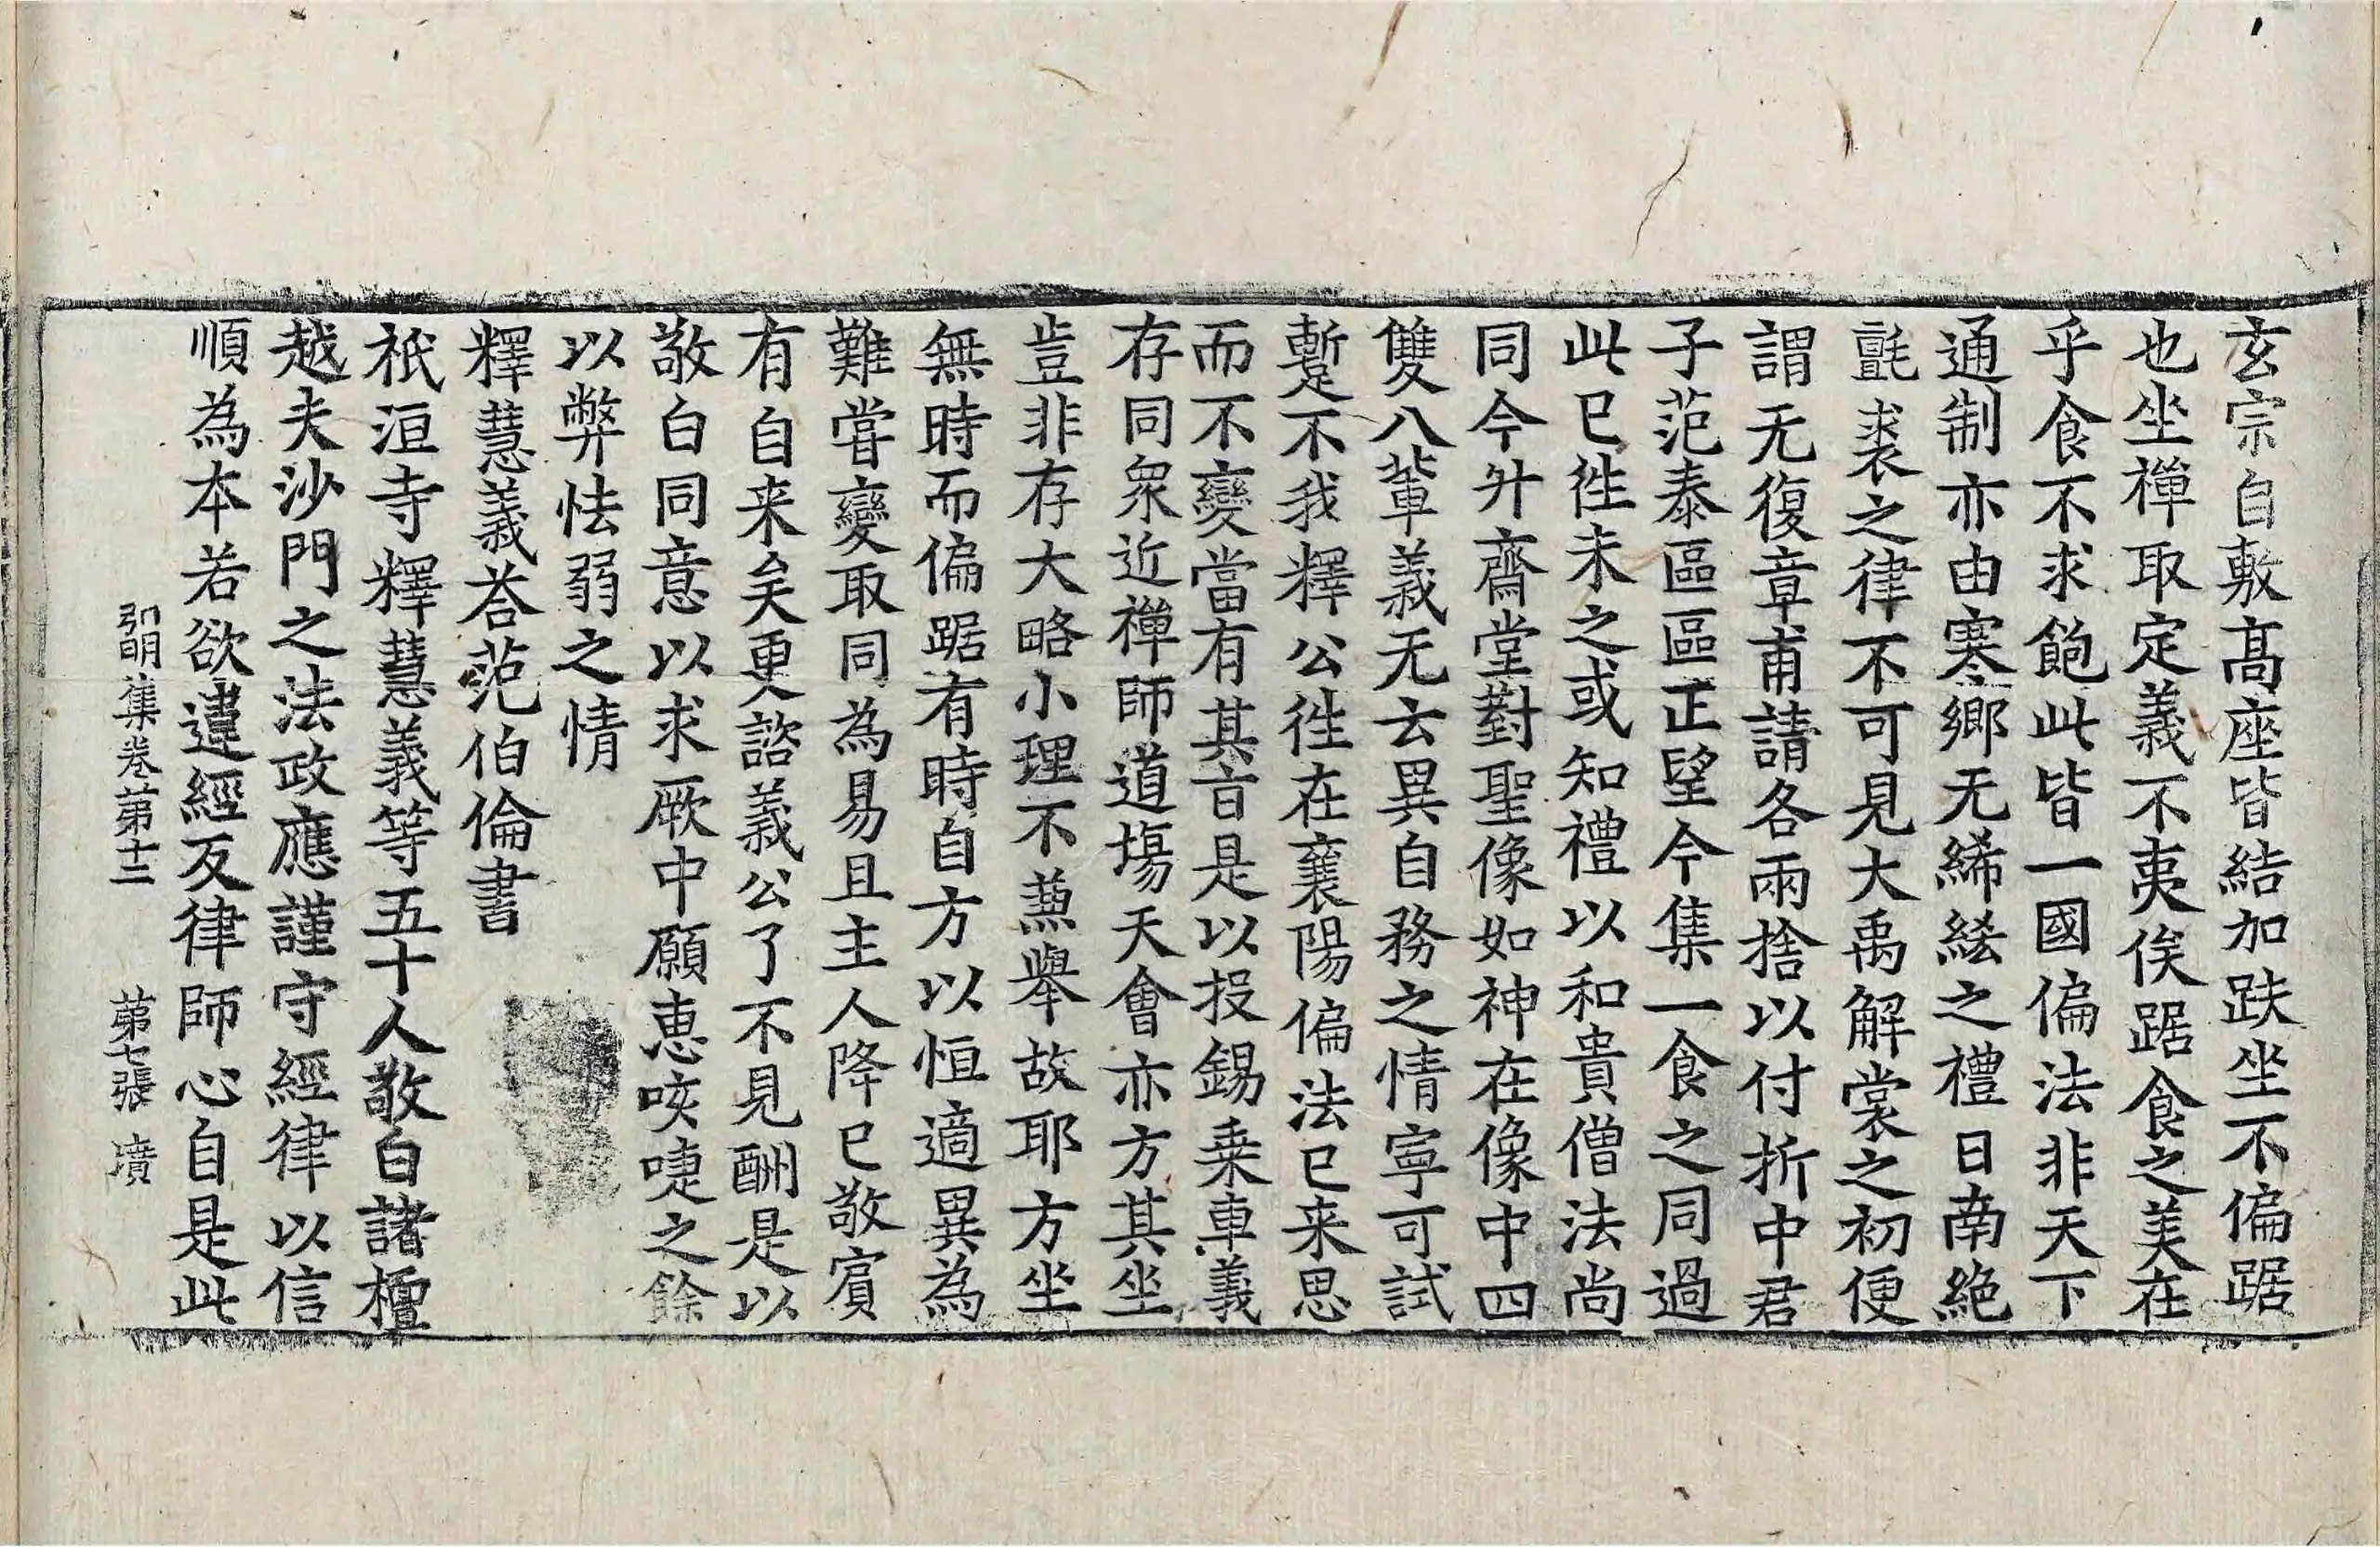 玄宗自敷髙座皆結加趺坐不偏踞
也坐禪取定義不夷俟踞食之美在
乎食不求飽此皆一國偏法非天下
通制亦由寒鄉无絺綌之禮日南絶
氈裘之律不可見大禹解裳之初便
謂无復章甫請各兩捨以付折中君
子范泰區區正望今集一食之同過
此已徃未之或知禮以和貴僧法尚
同今升齋堂對聖像如神在像中四
雙八輩義无云異自務之情寧可試
蹔不我釋公徃在襄陽偏法已来思
而不變當有其旨是以投錫乗車義
存同衆近禪師道塲天會亦方其坐
豈非存大略小理不𠔥舉故耶方坐
無時而偏踞有時自方以恒適異為
難嘗變取同為易且主人降已敬賓
有自来矣更諮義公了不見酬是以
敬白同意以求厥中願惠咳唾之餘
以弊怯弱之情
釋慧義荅范伯倫書
祇洹寺釋慧義等五十人敬白諸檀
越夫沙門之法政應謹守經律以信
順為本若欲違經反律師心自是此
弘明集卷第十二　第七張　墳